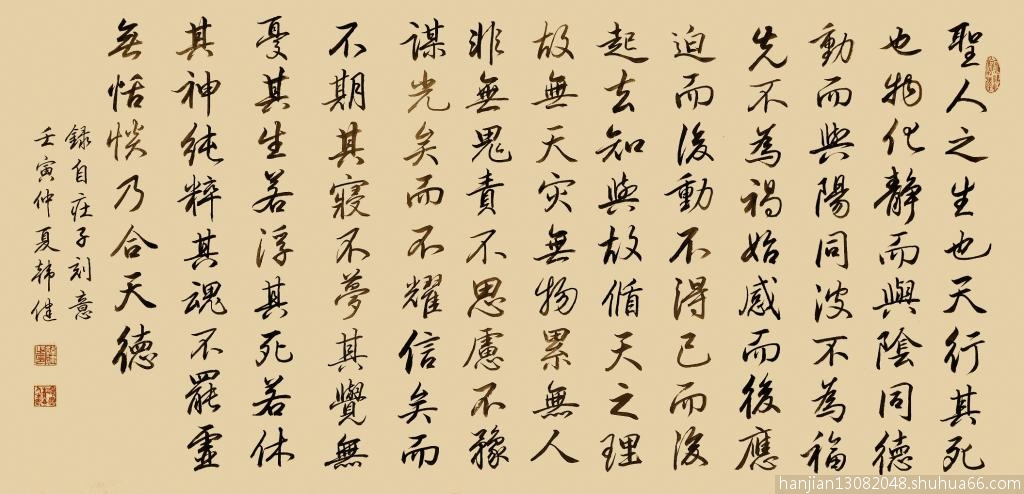 聖人之生也天行其死
也物化靜而與陰同德
動而與陽同波不為福
先不為禍始感而後應
迫而後動不得已而後
起去知與故循天之理
故無天灾無物累無人
非無鬼責不思慮不豫
謀光矣而不耀信矣而
不期其寢不夢其覺無
憂其生若浮其死若休
其神純粹其魂不罷虛
無恬惔乃合天德
錄自庄子刻意
壬寅仲夏韩健
hanjian13082048.shuhua66.com